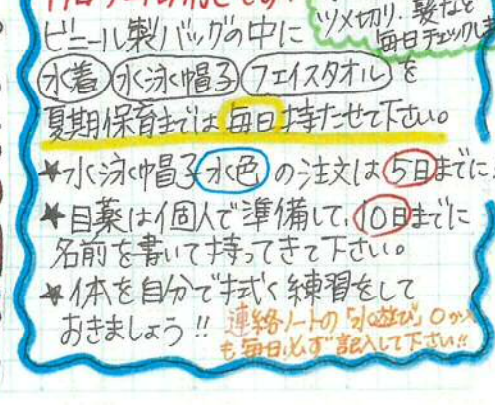 ビニール製バッグの中に
ツメ切り、髪など
毎日チェックしま
水着 水泳帽子 フェイスタオル を
夏期保育では毎日持たせて下さい。
★水泳帽子水色の注文は5日までに
★目薬は個人で準備して、10日までに
名前を書いて持ってきて下さい。
★体を自分で拭く練習をして
おきましょう!!
連絡ノートの「水遊び」○か×
も毎日必ず記入して下さい!!